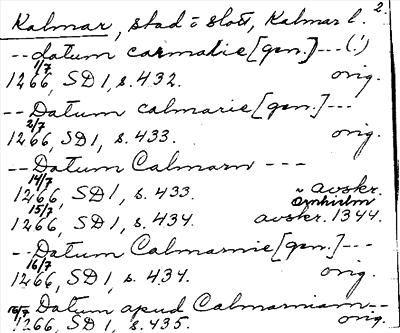 2.
Kalmar, stad o slott, Kalmar l.
-- datum carmalie [gen.] --- (!)
1/7
1266, SD 1, s. 432. orig.
-- Datum calmarie [gen.] ---
2/7
1266, SD 1, s. 433. orig.
-- Datum Calmarn ---
14/7
1266, SD 1, s. 433. avskr.
Örnhielm
15/7
1266, SD 1, s. 434. avskr. 1344.
-- Datum Calmarnie [gen.] ---
16/7
1266, SD 1, s. 434. orig.
-- Datum apud Calmarniam --
16/7
1266, SD 1, s. 435. orig.